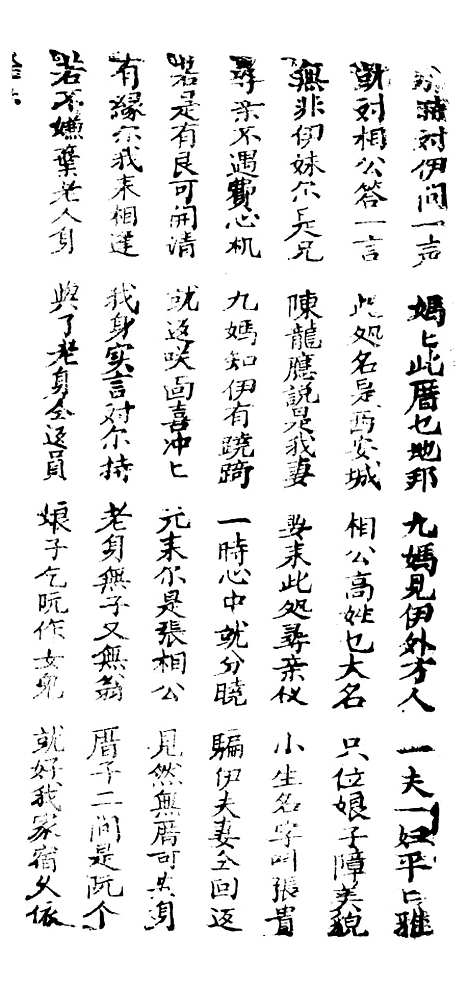 对伊問一声 媽匕此厝乜地邦 九媽見伊外方人 一夫一妇平匕雅
就对相公答一言 此処名是西安城 相公高姓乜大名 只位娘子障美貌
無非伊妹尔是兄 陳龍應説是我妻 娶来此処尋亲 小生名字叫張貴
尋亲不遇費心机 九媽知伊有蹺踦 一時心中就分曉 騙伊夫妻仝回返
若是有良可開清 就返咲面喜冲匕 元来尔是張相公 見然無厝可共身
有緣尔我来相逢 我身实言对尔持 老身無子又無翁 厝子二间是阮个
若不嫌棄老人身 與了老身仝返員 娘子乞阮作女兒 就好我家宿久依